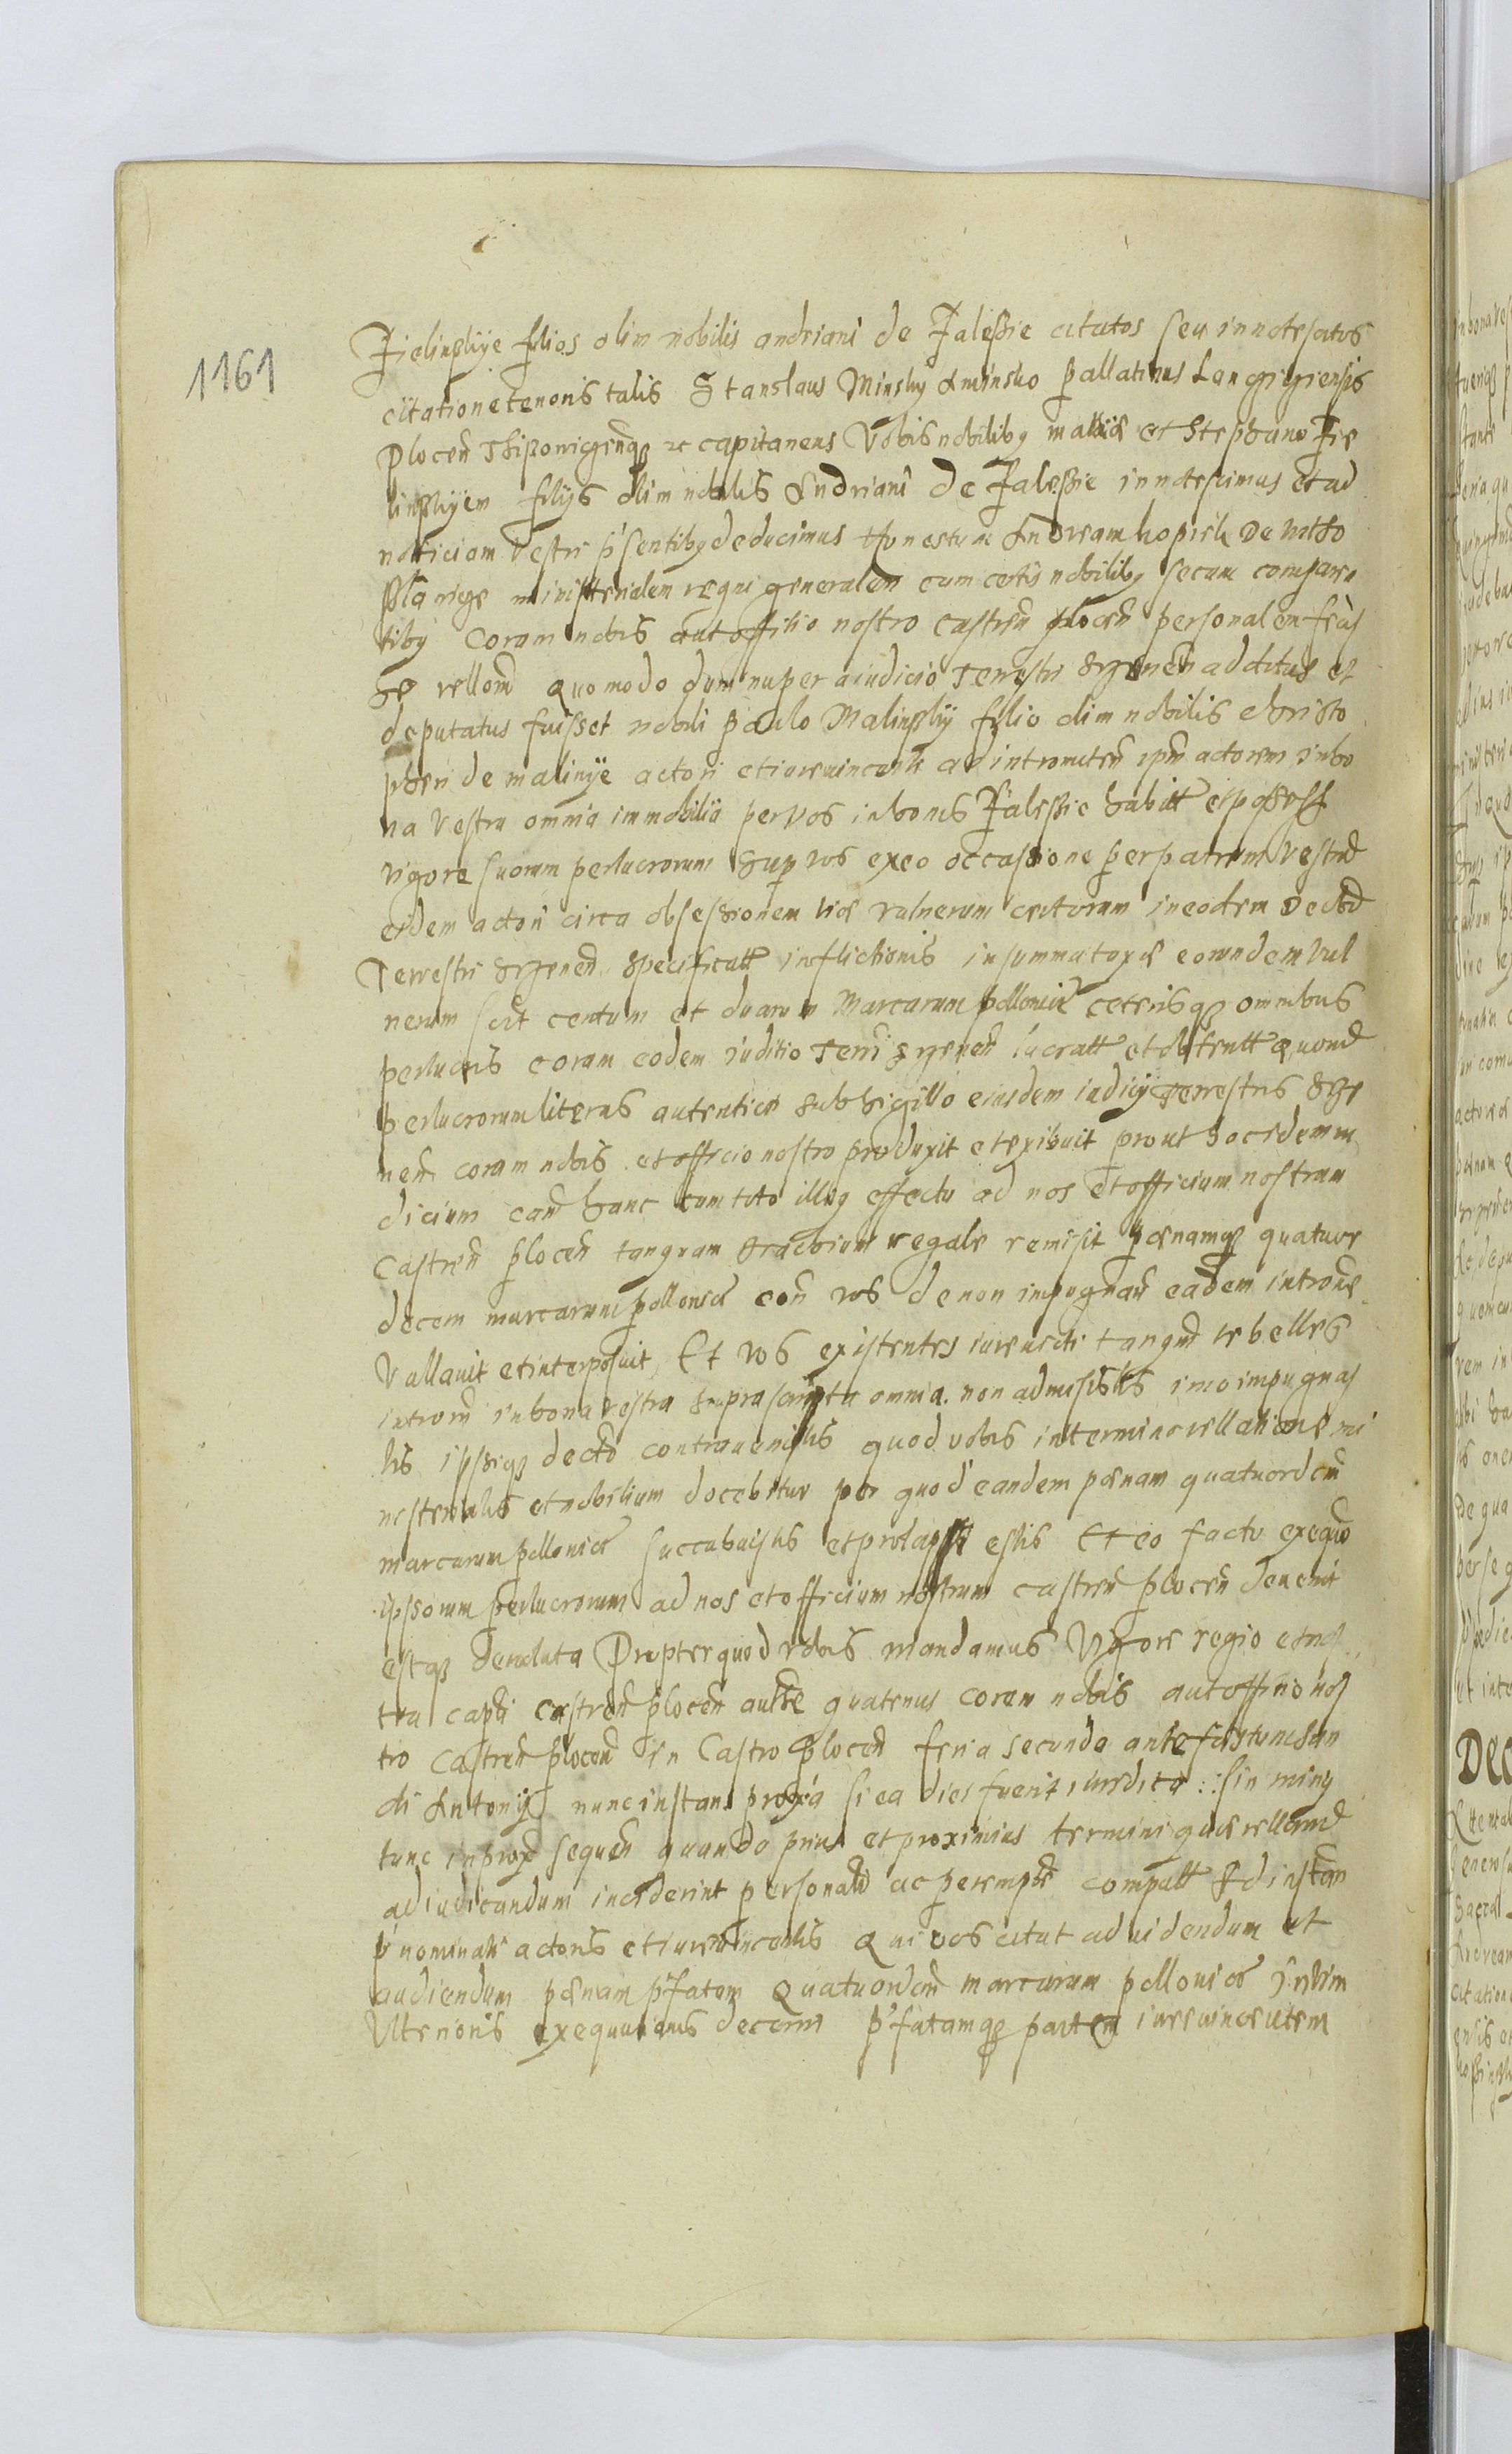 1161
Zielinskye filios olim nobilis andriani de Zalessie citatos seu innotescatos
citatione tenoris talis Stanslaus Minsky Aminsko pallatinus Lancziciensis
Plocen̄ capitaneus Vobis nobilibꝫ mathiæ et Stephano Zie
linskyem filijs olim nobilis Andriani de Zalessie innotescimus et ad
noticiam vestrã p̃sentibꝫ deducimus Honestum Andream kopick de
ministerialem regni generalem cum certis nobilibꝫ secum comparen
tibꝫ Coram nobis aut officio nostro castren̄ plocen̄ personalem
se rellom̄ quomodo dum nuper a iudicio Terrestri additus et
deputatus fuisset nobili paulo Malinskij filio olim nobilis christo
pheri de malinye actori et iurevincenti ad intromitten̄ ipm̄ actorem in bo
na vestra omnia immobilia per vos in bonis Zalessie habitt et possess
vigore suorum perlucrorum sup vos ex eo occasione per patrem vestrū
eidem actori circa obsessionem viæ vulnerum certorum in eodem decto
Terrestri specificatt inflictionis in summa taxæ eorundem vul
nerum scit centum et duarum Marcarum pollonicæ ceterisqꝫ omnibus
perlucris coram eodem iuditio Terri lucratt et obtentt Quorū
perlucrorum literas autentice sub sigillo eiusdem iudicij Terrestris
nen̄ coram nobis et officio nostro produxit et exibuit prout hoc idem iu
dicium cam̄ hanc cum toto illiꝫ effectu ad nos et officium nostrum
Castren̄ plocen̄ tanquam brachium regale remisit pœnamqꝫ quatuor
decem marcarum pollonicæ con̄ vos de non impugnan̄ eadem introm̄
Vallauit et interposuit, Et vos existentes iurevicti tanqm̄ rebelles
introm̄ in bona vestra suprascripta omnia non admisistis imo impugnas
tis ipsiqꝫ decto contravenistis quod vobis in termino rellatione mi
nisterialis et nobilium docebitur per quod eandem pœnam quatuordem̄
marcarum pollonicæ succubuistis et prolapsi estis Et eo facto exequo
ipsorum perlucrorum ad nos et officium nostrum castren̄ plocen̄ devenit
estqꝫ devoluta Propter quod vobis mandamus Vigore regio et nos
tra capti castren̄ plocen̄ autte quatenus coram nobis aut officio nos
tro castren̄ plocen̄ in Castro plocen̄ feria secunda ante festum san
cti Antonij nunc instan proxia si ea dies fuerit iuridica : sin miny
tunc in prox sequen̄ quando prius et proximius termini querellarū
ad iudicandum inciderint personalr̄ ac perempte compatt Ad instan
p̃nominati actoris et iurevincentis Qui vos citat ad uidendum et
audiendum pœnam p̃fatam Quatuordem̄ marcarum pollonicæ
Vlterioris exequutionis decerni p̃fatamqꝫ partem iurevincentem